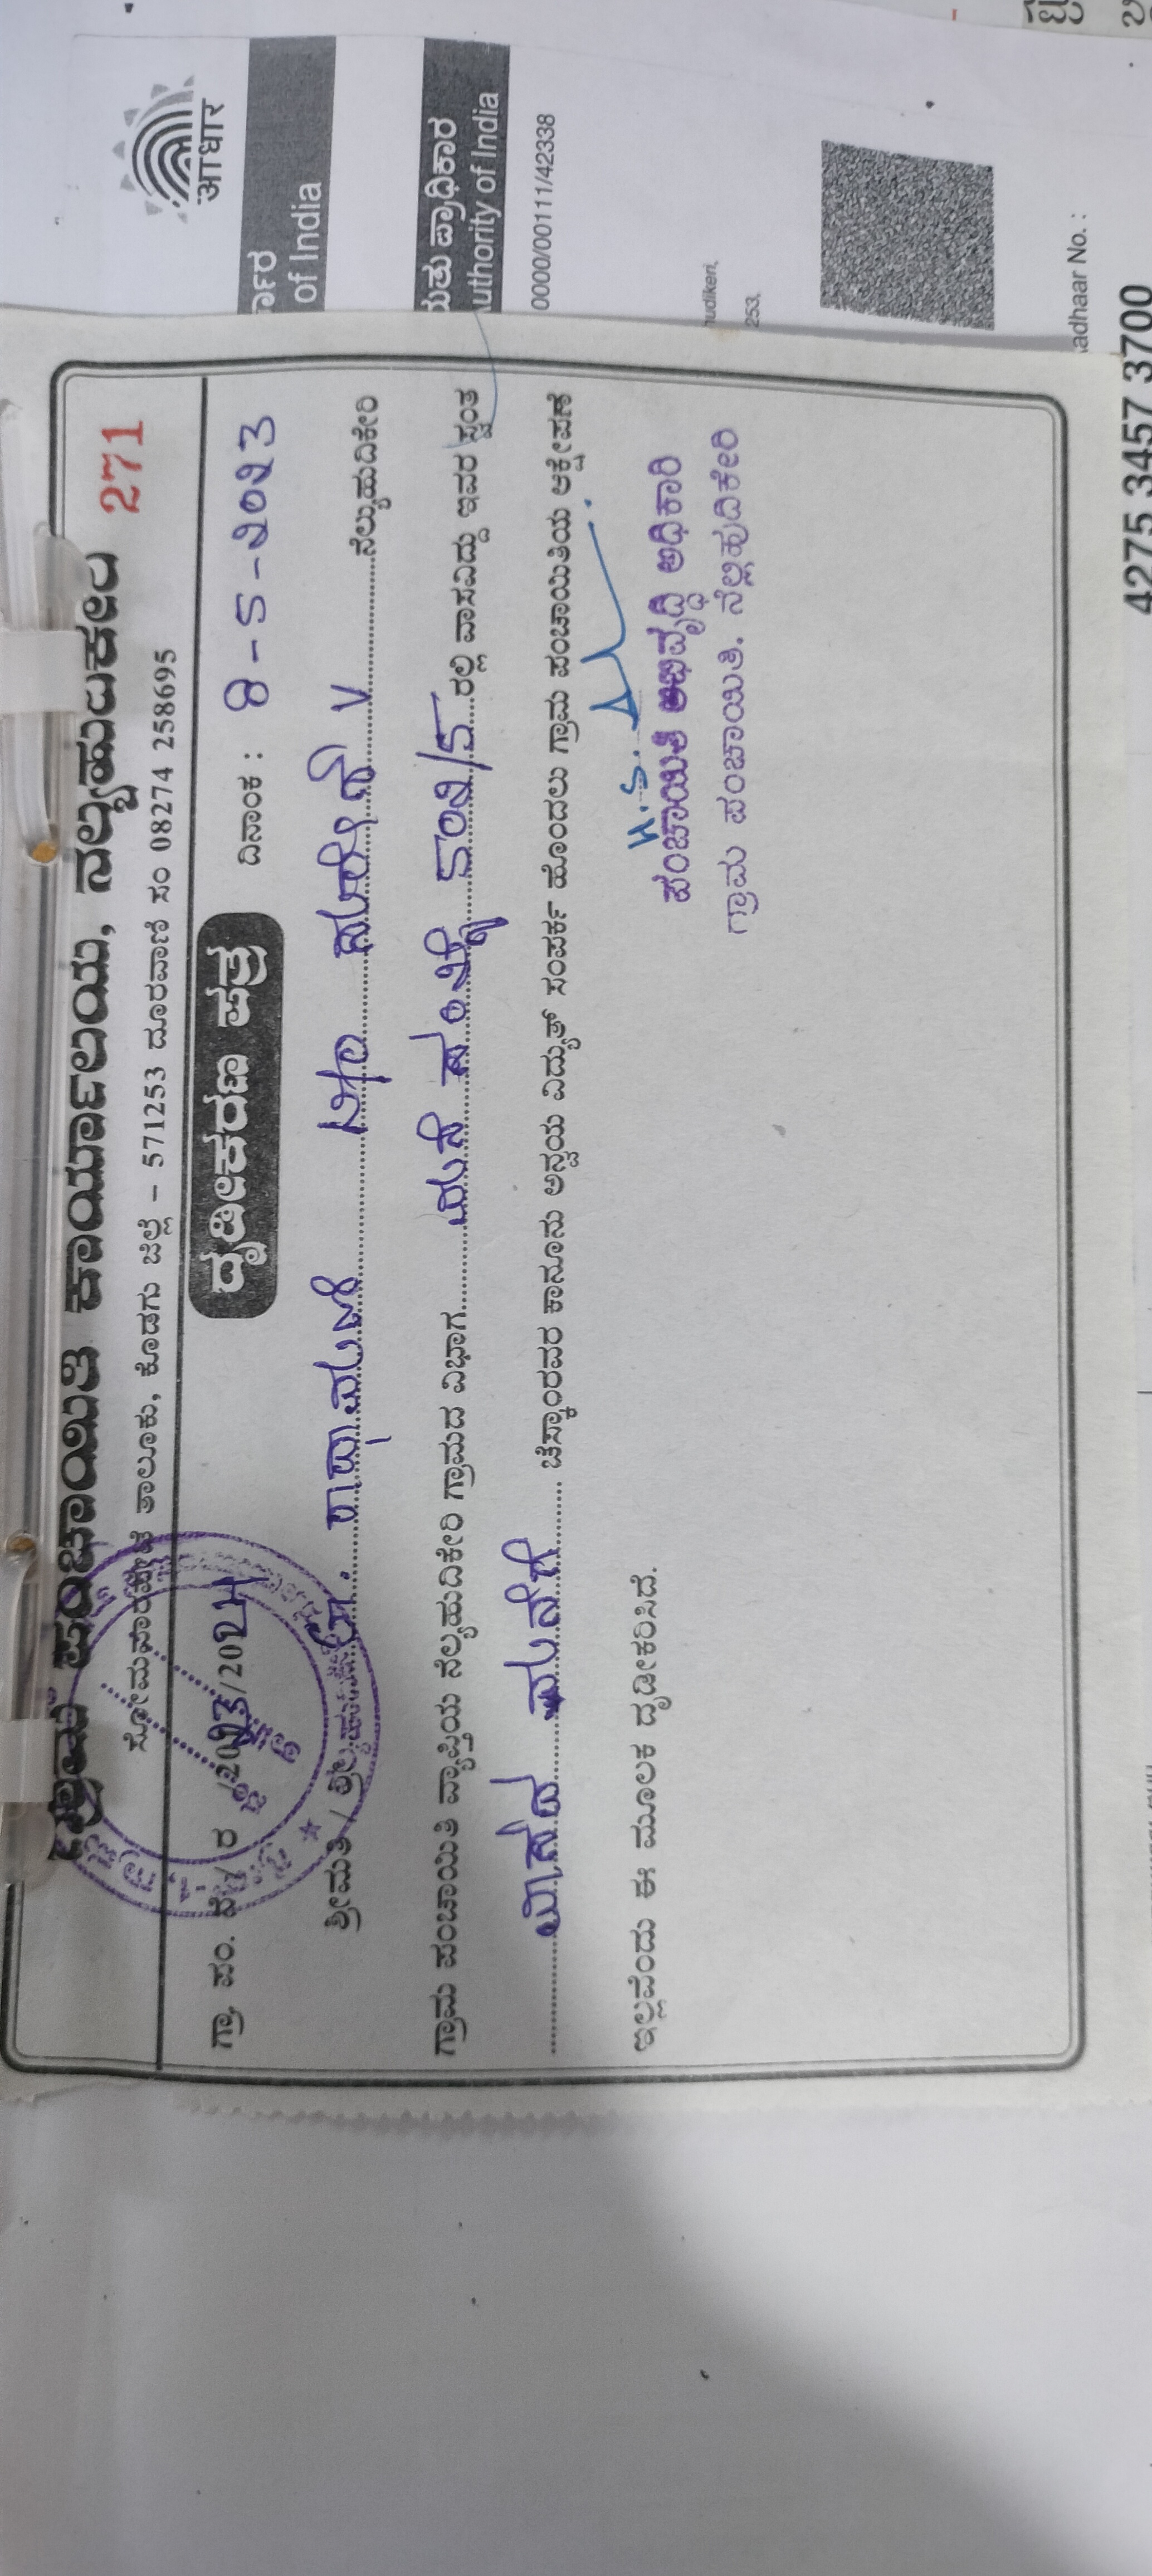 ಗ್ರಾಮ ಪಂಚಾಯಿತಿ ಕಾರ್ಯಾಲಯ, ನೆಲ್ಯಹುದಿಕೇರಿ
271
ಸೋಮವಾರಪೇಟೆ ತಾಲೂಕು, ಕೊಡಗು ಜಿಲ್ಲೆ – 571253 ದೂರವಾಣಿ ಸಂ 08274 258695
ಗ್ರಾ. ಪಂ. ನೆ/ ರ /2023/2024
ದೃಢೀಕರಣ ಪತ್ರ
ದಿನಾಂಕ : 8-5-2023
ಶ್ರೀಮತಿ / ಶ್ರೀ ರಾಧಾಮಣಿ ಸುರೇಶ್ V ನೆಲ್ಯಹುದಿಕೇರಿ
ಗ್ರಾಮ ಪಂಚಾಯಿತಿ ವ್ಯಾಪ್ತಿಯ ನೆಲ್ಯಹುದಿಕೇರಿ ಗ್ರಾಮದ ವಿಭಾಗ ಮನೆ ಸಂಖ್ಯೆ 502/5 ರಲ್ಲಿ ವಾಸವಿದ್ದು ಇವರ ಸ್ವಂತ
ವಾಸದ ಮನೆಗೆ ಚೆಸ್ಕಾಂರವರ ಕಾನೂನು ಅನ್ವಯ ವಿದ್ಯುತ್ ಸಂಪರ್ಕ ಹೊಂದಲು ಗ್ರಾಮ ಪಂಚಾಯಿತಿಯ ಆಕ್ಷೇಪಣೆ
ಇಲ್ಲವೆಂದು ಈ ಮೂಲಕ ದೃಢೀಕರಿಸಿದೆ.
ಪಂಚಾಯಿತಿ ಅಭಿವೃದ್ಧಿ ಅಧಿಕಾರಿ
ಗ್ರಾಮ ಪಂಚಾಯಿತಿ. ನೆಲ್ಲಹುದಿಕೇರಿ
आधार
of India
uthority of India
0000/00111/42338
udikeri,
253,
adhaar No. :
4275 3457 3700